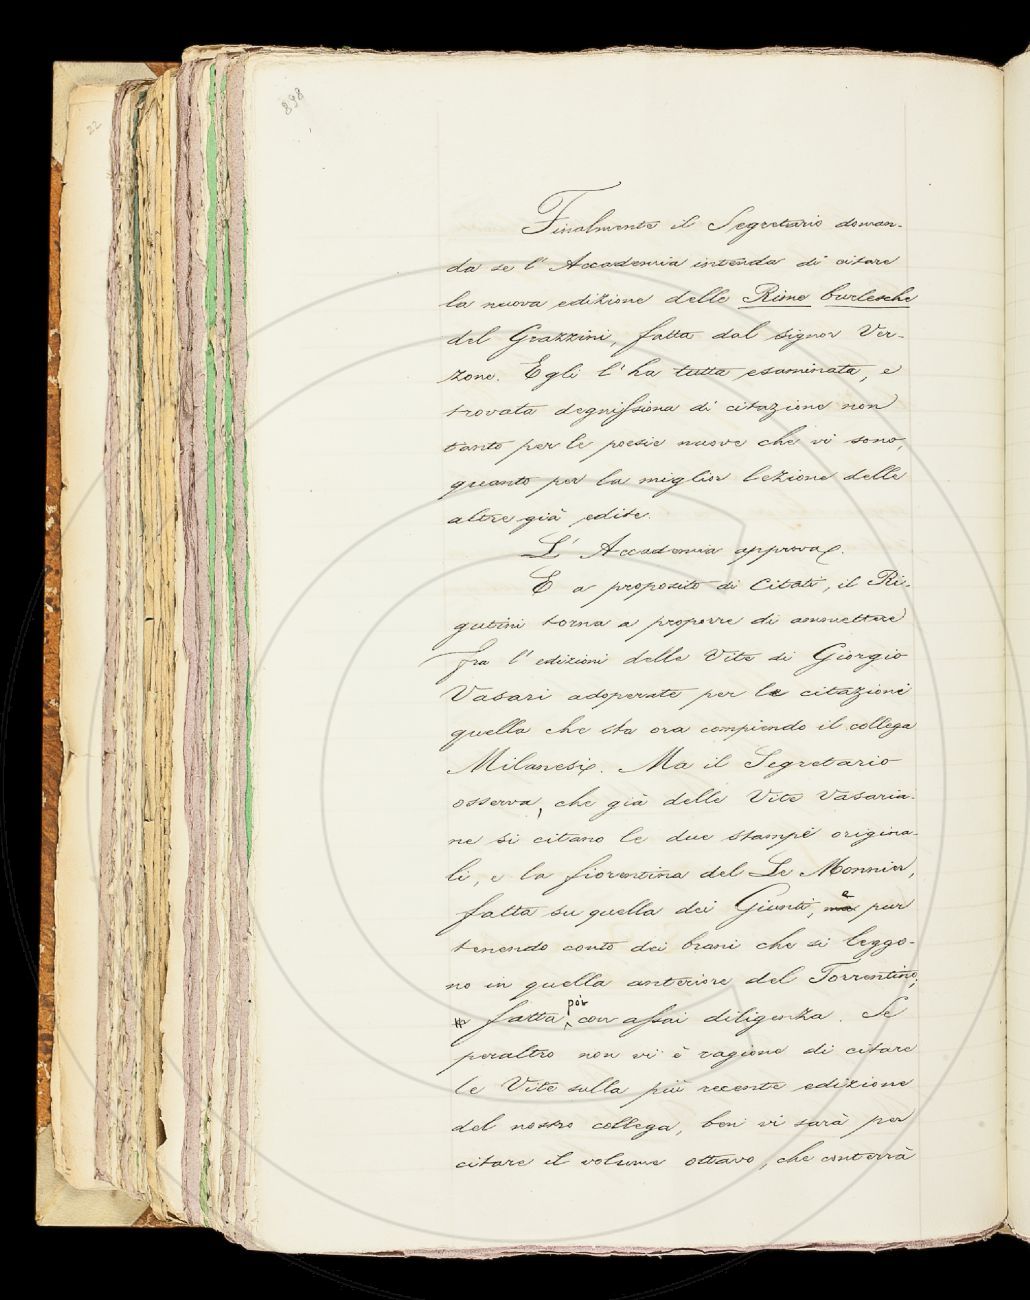 898
22
Finalmente il Segretario doman-
da se l'Accademia intenda di citare
la nuova edizione delle Rime burlesche
del Grazzini, fatta dal signor Ver-
zone. Egli l'ha tutta esaminata, e
trovata degnissima di citazione non
tanto per le poesie nuove che vi sono,
quanto per la miglior lezione delle
altre già edite.
L'Accademia approva.
E a proposito di Citati, il Ri-
gutini torna a proporre di ammettere
fra l'edizioni delle Vite di Giorgio
Vasari adoperate per le citazioni
quella che sta ora compiendo il collega
Milanesi. Ma il Segretario
osserva, che già delle Vite Vasaria-
ne si citano le due stampe origina-
li, e la fiorentina del Le Monnier,
fatta su quella dei Giunti, e pur
tenendo conto dei brani che si leggo-
no in quella anteriore del Torrentino;
fatta poi con assai diligenza. Se
peraltro non vi è ragione di citare
le Vite sulla più recente edizione
del nostro collega, ben vi sarà per
citare il volume ottavo, che conterrà